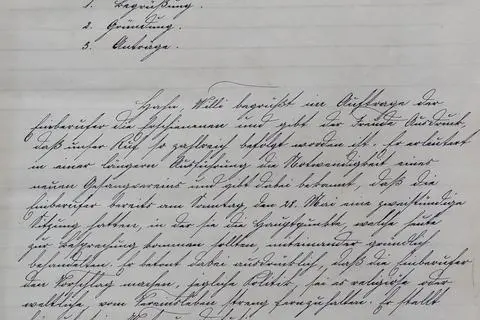 1. Begrüßung.
2. Gründung.
3. Anträge.
Hahn, Willi begrüßt im Auftrage der
Einberufer die Erschienenen und gibt der Freude Ausdruck,
daß unser Ruf so zahlreich befolgt worden ist. Er erläutert
in einer längern Ausführung die Notwendigkeit eines
neuen Gesangvereins und gibt dabei bekannt, daß die
Einberufer bereits am Samstag, den 28. Mai eine zweistündige
Sitzung hatten, in der sie die Hauptpunkte, welche heute
zur Besprechung kommen sollten, miteinander gründlich
behandelten. Er betont dabei ausdrücklich, daß die Einberufer
den Vorschlag machen, jegliche Politik, sei es religiöse oder
weltliche vom Vereinsleben streng fernzuhalten. Er stellt